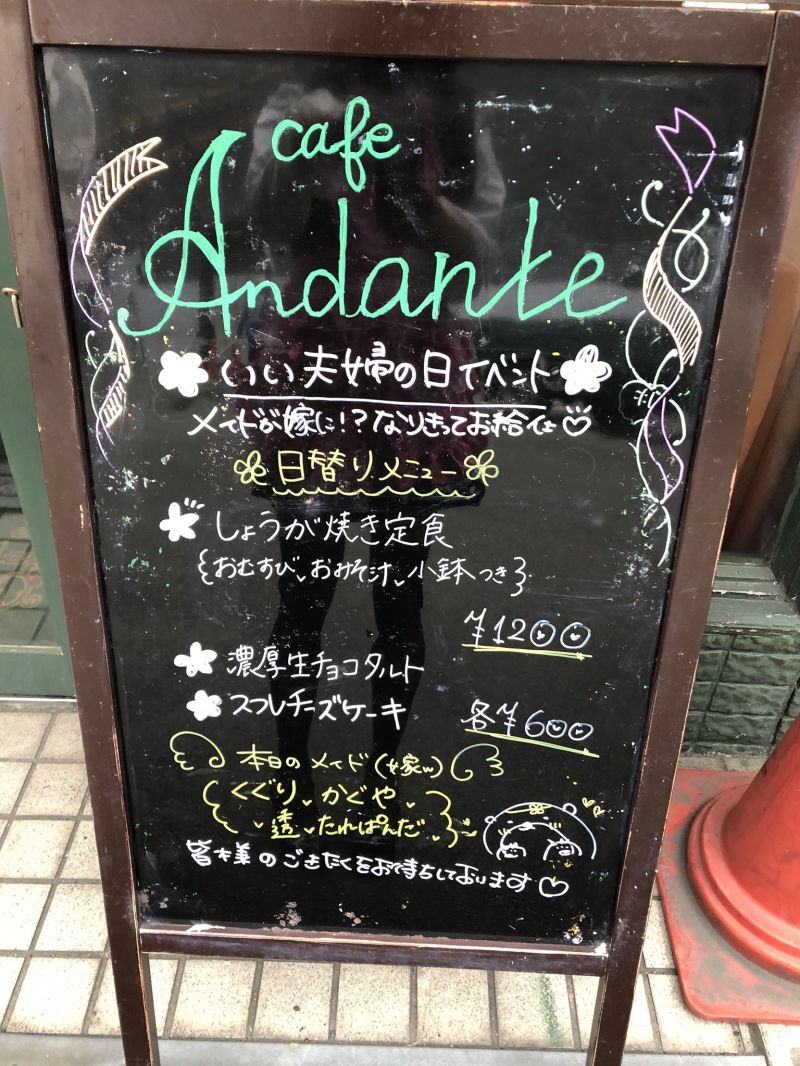 cafe
Andante
いい夫婦の日イベント
メイドが嫁に!?なりきってお給仕♡
日替りメニュー
しょうが焼き定食
{おむすび、おみそ汁、小鉢つき}
¥1200
濃厚生チョコタルト
スフレチーズケーキ
各¥600
本日のメイド(嫁w)
くぐり、かぐや、
透、たれぱんだ、
皆様のごきたくをお待ちしております♡